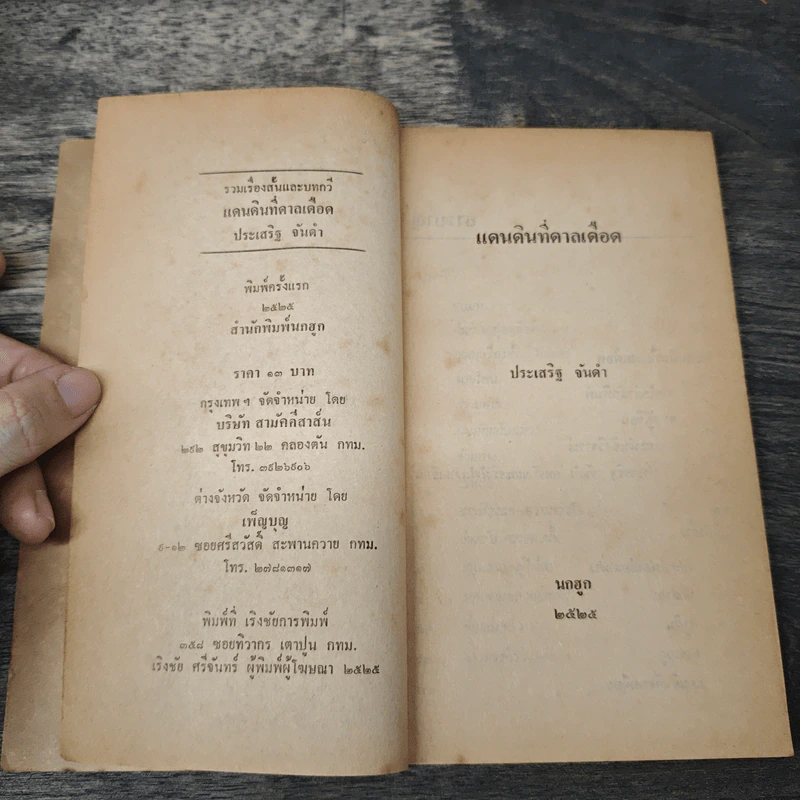 รวมเรื่องสั้นและบทกวี
แดนดินที่ดาลเดือด
ประเสริฐ จันดำ
พิมพ์ครั้งแรก
๒๕๒๕
สำนักพิมพ์นกฮูก
ราคา ๑๓ บาท
กรุงเทพ ฯ จัดจำหน่าย โดย
บริษัท สามัคคีสาส์น
๒๙๒ สุขุมวิท ๒๒ คลองตัน กทม.
โทร. ๓๙๒๖๙๐๖
ต่างจังหวัด จัดจำหน่าย โดย
เพ็ญบุญ
๙-๑๒ ซอยศรีสวัสดิ์ สะพานควาย กทม.
โทร. ๒๗๘๑๓๑๗
พิมพ์ที่ เริงชัยการพิมพ์
๓๕๘ ซอยทิวากร เตาปูน กทม.
เริงชัย ศรีจันทร์ ผู้พิมพ์ผู้โฆษณา ๒๕๒๕
แดนดินที่ดาลเดือด
ประเสริฐ จันดำ
นกฮูก
๒๕๒๕